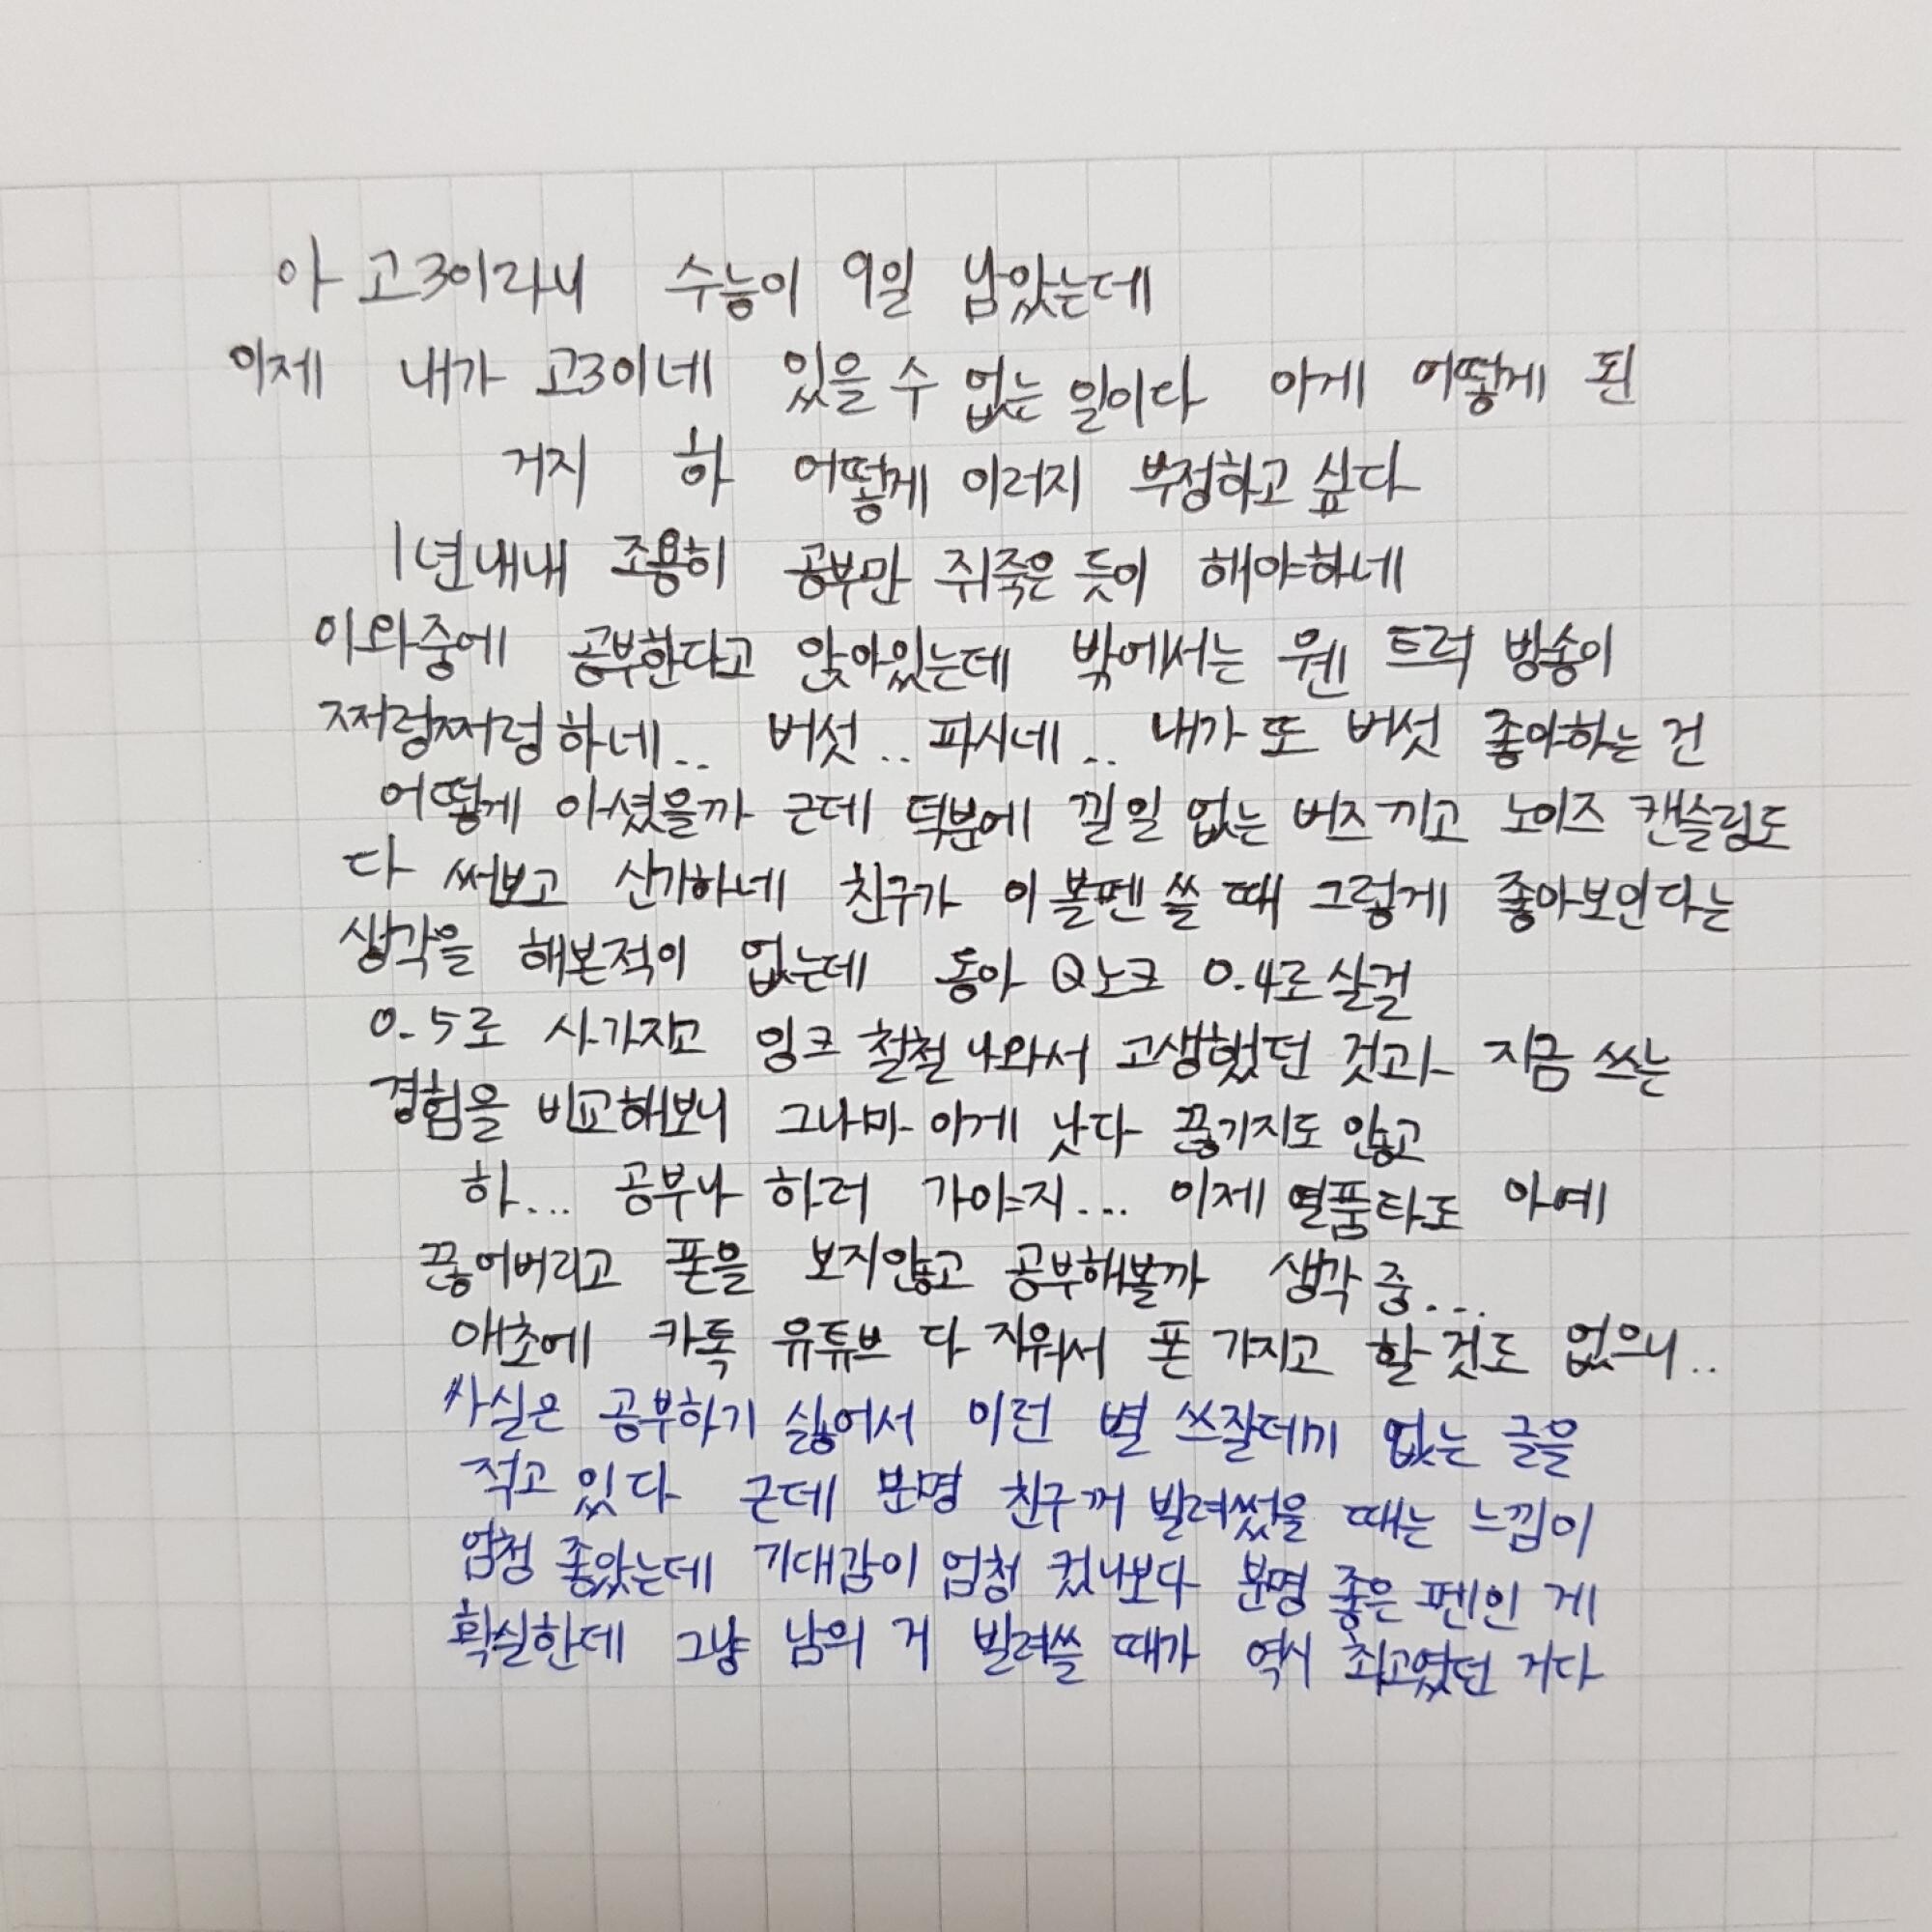 아 고3이라니 수능이 9일 남았는데
이제 내가 고3이네 있을 수 없는 일이다 이게 어떻게 된
거지 하 어떻게 이러지 부정하고 싶다
1년내내 조용히 공부만 쥐죽은 듯이 해야하네
이와중에 공부한다고 앉아있는데 밖에서는 웬 트럭 방송이
쩌렁쩌렁하네.. 버섯.. 파시네.. 내가 또 버섯 좋아하는 건
어떻게 아셨을까 근데 덕분에 낄일 없는 버즈 끼고 노이즈 캔슬링도
다 써보고 신기하네 친구가 이 볼펜 쓸 때 그렇게 좋아보인다는
생각을 해본적이 없는데 동아 Q노크 0.4로 살걸
0.5로 사가지고 잉크 철철 나와서 고생했던 것과 지금 쓰는
경험을 비교해보니 그나마 이게 낫다 끊기지도 않고
하... 공부나 하러 가야지... 이제 열품타도 아예
끊어버리고 폰을 보지않고 공부해볼까 생각 중...
애초에 카톡 유튜브 다 지워서 폰 가지고 할 것도 없으니..
사실은 공부하기 싫어서 이런 별 쓰잘데기 없는 글을
적고 있다 근데 분명 친구꺼 빌려썼을 때는 느낌이
엄청 좋았는데 기대감이 엄청 컸나보다 분명 좋은 펜인 게
확실한데 그냥 남의 거 빌려쓸 때가 역시 최고였던 거다